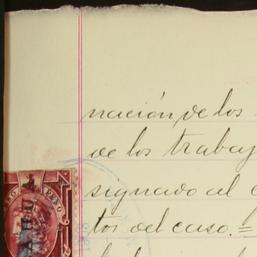 nación de los
de los trabaj
signado al c
tos del caso.=